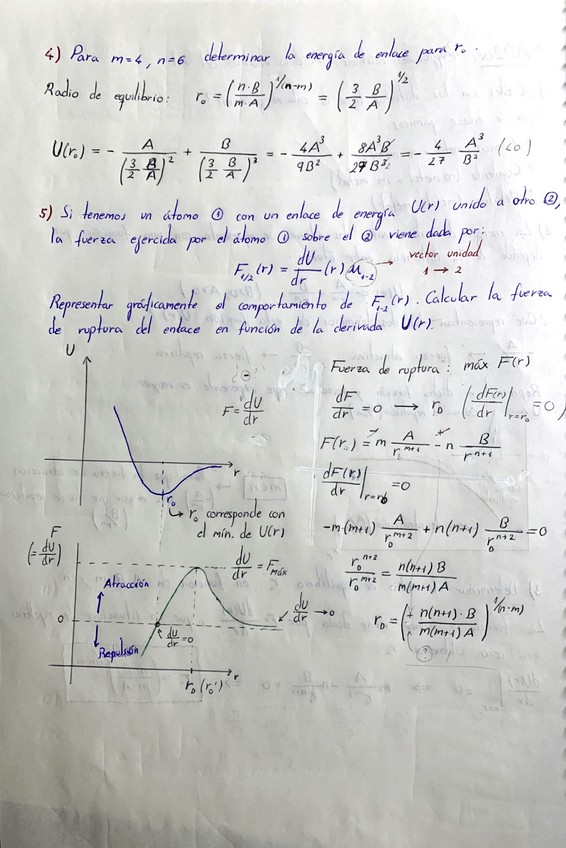 4) Para m=4, n=6 determinar la energía de enlace para r₀.
Radio de equilibrio: r₀ = (n·B / m·A)^1/(n-m) = (3/2 B/A)^1/2
U(r₀) = - A/(3/2 B/A)² + B/(3/2 B/A)³ = - 4A³/9B² + 8A³B/27B³ = - 4/27 A³/B² (<0)
5) Si tenemos un átomo ① con un enlace de energía U(r) unido a otro ②,
la fuerza ejercida por el átomo ① sobre el ② viene dada por:
F₁,₂(r) = dU/dr (r) u₁₋₂ → vector unidad
1 → 2
Representar gráficamente el comportamiento de F₁₋₂(r). Calcular la fuerza
de ruptura del enlace en función de la derivada U(r).
U
¿⊖?
F = dU/dr
r
r₀
↳ r₀ corresponde con
el mín. de U(r)
F
(= dU/dr)
dU/dr = Fmáx
Atracción
dU/dr → 0
0
dU/dr = 0
Repulsión
r_D (r₀')
r
Fuerza de ruptura: máx F(r)
dF/dr = 0 → r_D (dF(r)/dr |r=r₀' = 0)
F(r₀) = m A/r₀^m+1 - n B/r^n+1
dF(r₀)/dr |r=r₀ = 0
-m·(m+1) A/r_D^m+2 + n(n+1) B/r_D^n+2 = 0
r_D^n+2 / r_D^m+2 = n(n+1) B / m(m+1) A
r_D = (+ n(n+1)·B / + m(m+1) A)^1/(n-m)
?